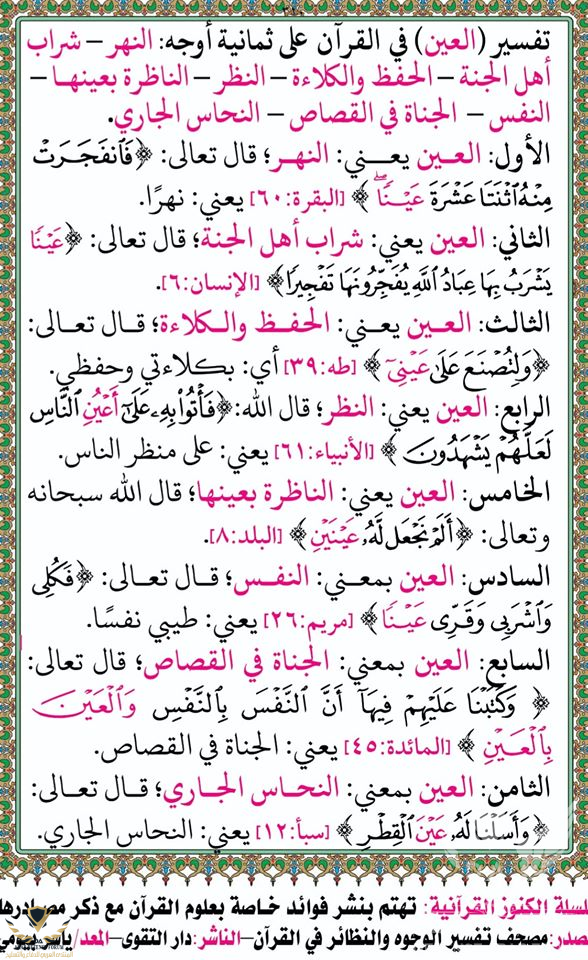 تفسير (العين) في القرآن على ثمانية أوجه: النهر – شراب
أهل الجنة – الحفظ والكلاءة – النظر – الناظرة بعينها –
النفس – الجناة في القصاص – النحاس الجاري.
الأول: العين يعني: النهر؛ قال تعالى: ﴿فَٱنفَجَرَتۡ
مِنۡهُ ٱثۡنَتَا عَشۡرَةَ عَيۡنٗاۖ﴾ [البقرة:٦٠] يعني: نهرًا.
الثاني: العين يعني: شراب أهل الجنة؛ قال تعالى: ﴿عَيۡنٗا
يَشۡرَبُ بِهَا عِبَادُ ٱللَّهِ يُفَجِّرُونَهَا تَفۡجِيرٗا﴾ [الإنسان:٦].
الثالث: العين يعني: الحفظ والكلاءة؛ قال تعالى:
﴿وَلِتُصۡنَعَ عَلَىٰ عَيۡنِيٓ﴾ [طه:٣٩] أي: بكلاءتي وحفظي.
الرابع: العين يعني: النظر؛ قال الله: ﴿فَأۡتُواْ بِهِۦ عَلَىٰٓ أَعۡيُنِ ٱلنَّاسِ
لَعَلَّهُمۡ يَشۡهَدُونَ﴾ [الأنبياء:٦١] يعني: على منظر الناس.
الخامس: العين يعني: الناظرة بعينها؛ قال الله سبحانه
وتعالى: ﴿أَلَمۡ نَجۡعَل لَّهُۥ عَيۡنَيۡنِ﴾ [البلد:٨].
السادس: العين بمعني: النفس؛ قال تعالى: ﴿فَكُلِي
وَٱشۡرَبِي وَقَرِّي عَيۡنٗا﴾ [مريم:٢٦] يعني: طيبي نفسًا.
السابع: العين بمعني: الجناة في القصاص؛ قال تعالى:
﴿وَكَتَبۡنَا عَلَيۡهِمۡ فِيهَآ أَنَّ ٱلنَّفۡسَ بِٱلنَّفۡسِ وَٱلۡعَيۡنَ
بِٱلۡعَيۡنِ﴾ [المائدة:٤٥] يعني: الجناة في القصاص.
الثامن: العين بمعني: النحاس الجاري؛ قال تعالى:
﴿وَأَسَلۡنَا لَهُۥ عَيۡنَ ٱلۡقِطۡرِ﴾ [سبأ:١٢] يعني: النحاس الجاري.
لسلة الكنوز القرآنية: تهتم بنشر فوائد خاصة بعلوم القرآن مع ذكر مصادرها
صدر: مصحف تفسير الوجوه والنظائر في القرآن–الناشر: دار التقوى–المعد/ياسر